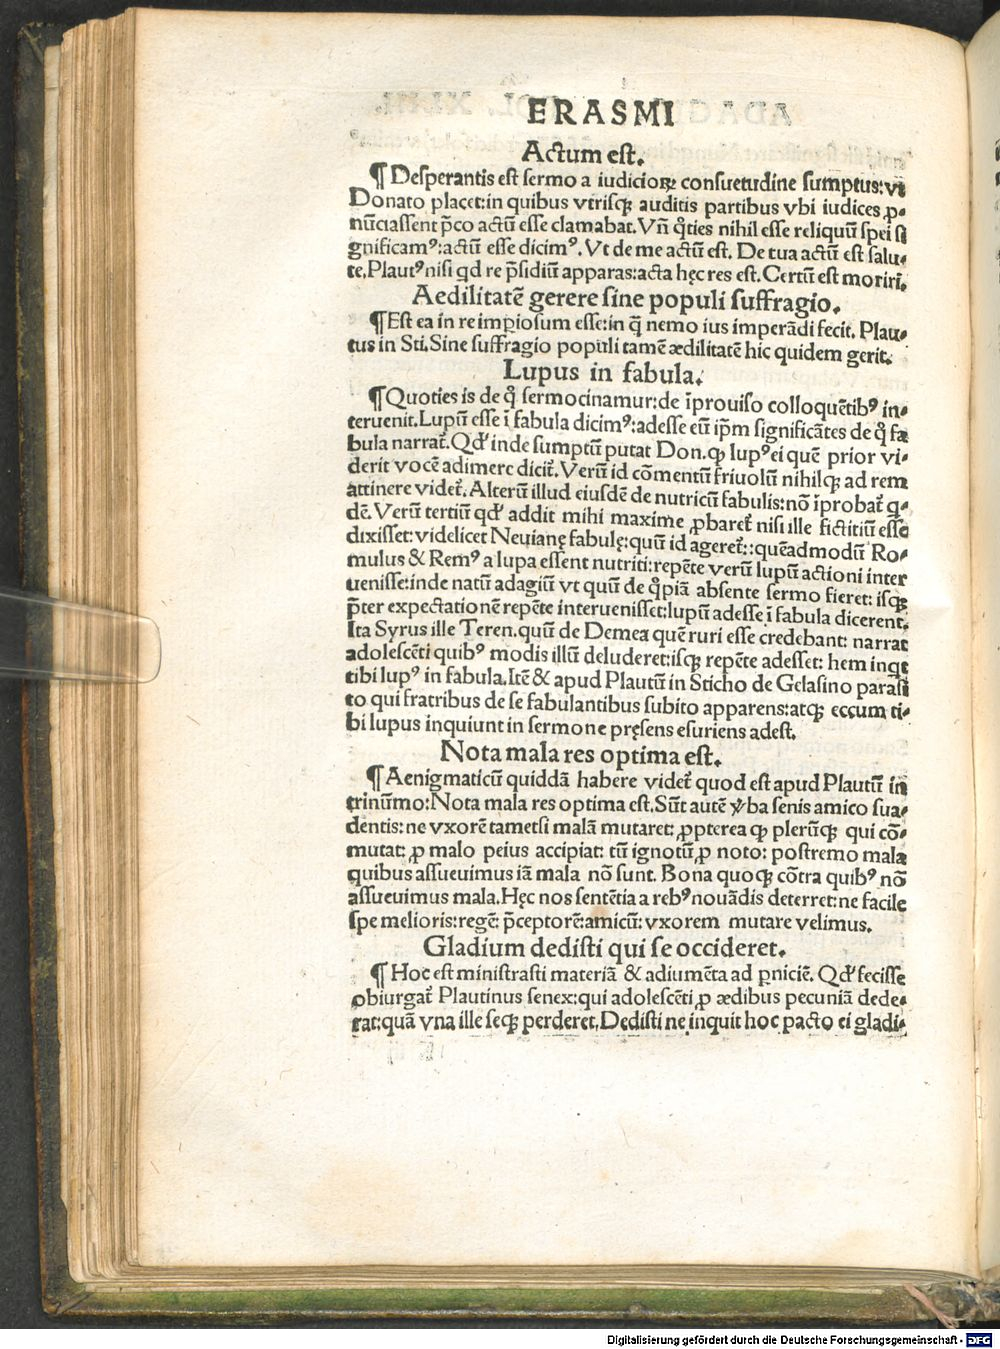 ERASMI
Actum est.
¶ Desperantis est sermo a iudicioꝝ consuetudine sumptus: vt
Donato placet: in quibus vtrisqꝫ auditis partibus vbi iudices ꝓ-
nũciassent p̃co actũ esse clamabat. Vñ q̃ties nihil esse reliquũ spei si
gnificamꝰ: actũ esse dicimꝰ. Vt de me actũ est. De tua actũ est salu-
te. Plautꝰ nisi qd re p̃sidiũ apparas: acta hęc res est. Certũ est moriri.
Aedilitatẽ gerere sine populi suffragio.
¶ Est ea in re imꝑiosum esse: in q̃ nemo ius imperãdi fecit. Plau-
tus in Sti. Sine suffragio populi tamẽ ædilitatẽ hic quidem gerit.
Lupus in fabula.
¶ Quoties is de q̊ sermocinamur: de ĩprouiso colloquẽtibꝰ in-
teruenit. Lupũ esse ĩ fabula dicimꝰ: adesse eũ ip̃m significãtes de q̊ fa
bula narrat᷑. Qd̓ inde sumptũ putat Don. ꝙ lupꝰ ei quẽ prior vi-
derit vocẽ adimere dicit᷑. Verũ id cõmentũ friuolũ nihilqꝫ ad rem
attinere videt᷑. Alterũ illud eiusdẽ de nutricũ fabulis: nõ ĩprobat᷑ q-
dẽ. Verũ tertiũ qd̓ addit mihi maxime ꝓbaret᷑ nisi ille fictitiũ esse
dixisset: videlicet Neuianę fabulę: quũ id ageret᷑:: quẽadmodũ Ro-
mulus & Remꝰ a lupa essent nutriti: repẽte verũ lupũ actioni inter
uenisse: inde natũ adagiũ vt quũ de q̊piã absente sermo fieret: isqꝫ
p̃ter expectationẽ repẽte interuenisset: lupũ adesse ĩ fabula dicerent.
Ita Syrus ille Teren. quũ de Demea quẽ ruri esse credebant: narrat
adolescẽti quibꝰ modis illũ deluderet: isqꝫ repẽte adesset: hem inqt
tibi lupꝰ in fabula. Itẽ & apud Plautũ in Sticho de Gelasino parasi
to qui fratribus de se fabulantibus subito apparens: atqꝫ eccum ti-
bi lupus inquiunt in sermone pręsens esuriens adest.
Nota mala res optima est.
¶ Aenigmaticũ quiddã habere videt᷑ quod est apud Plautũ in
trinũmo: Nota mala res optima est. Sũt autẽ v̓ba senis amico sua-
dentis: ne vxorẽ tametsi malã mutaret: ꝓpterea ꝙ plerũqꝫ qui cõ-
mutat: ꝓ malo peius accipiat: tũ ignotũ ꝓ noto: postremo mala
quibus assueuimus iã mala nõ sunt. Bona quoqꝫ cõtra quibꝰ nõ
assueuimus mala. Hęc nos sentẽtia a rebꝰ nouãdis deterret: ne facile
spe melioris: regẽ: p̃ceptorẽ: amicũ: vxorem mutare velimus.
Gladium dedisti qui se occideret.
¶ Hoc est ministrasti materiã & adiumẽta ad ꝑniciẽ. Qd̓ fecisse
obiurgat᷑ Plautinus senex: qui adolescẽti ꝓ ædibus pecuniã dede-
rat: quã vna ille seqꝫ perderet. Dedisti ne inquit hoc pacto ei gladi-
Digitalisierung gefördert durch die Deutsche Forschungsgemeinschaft - DFG